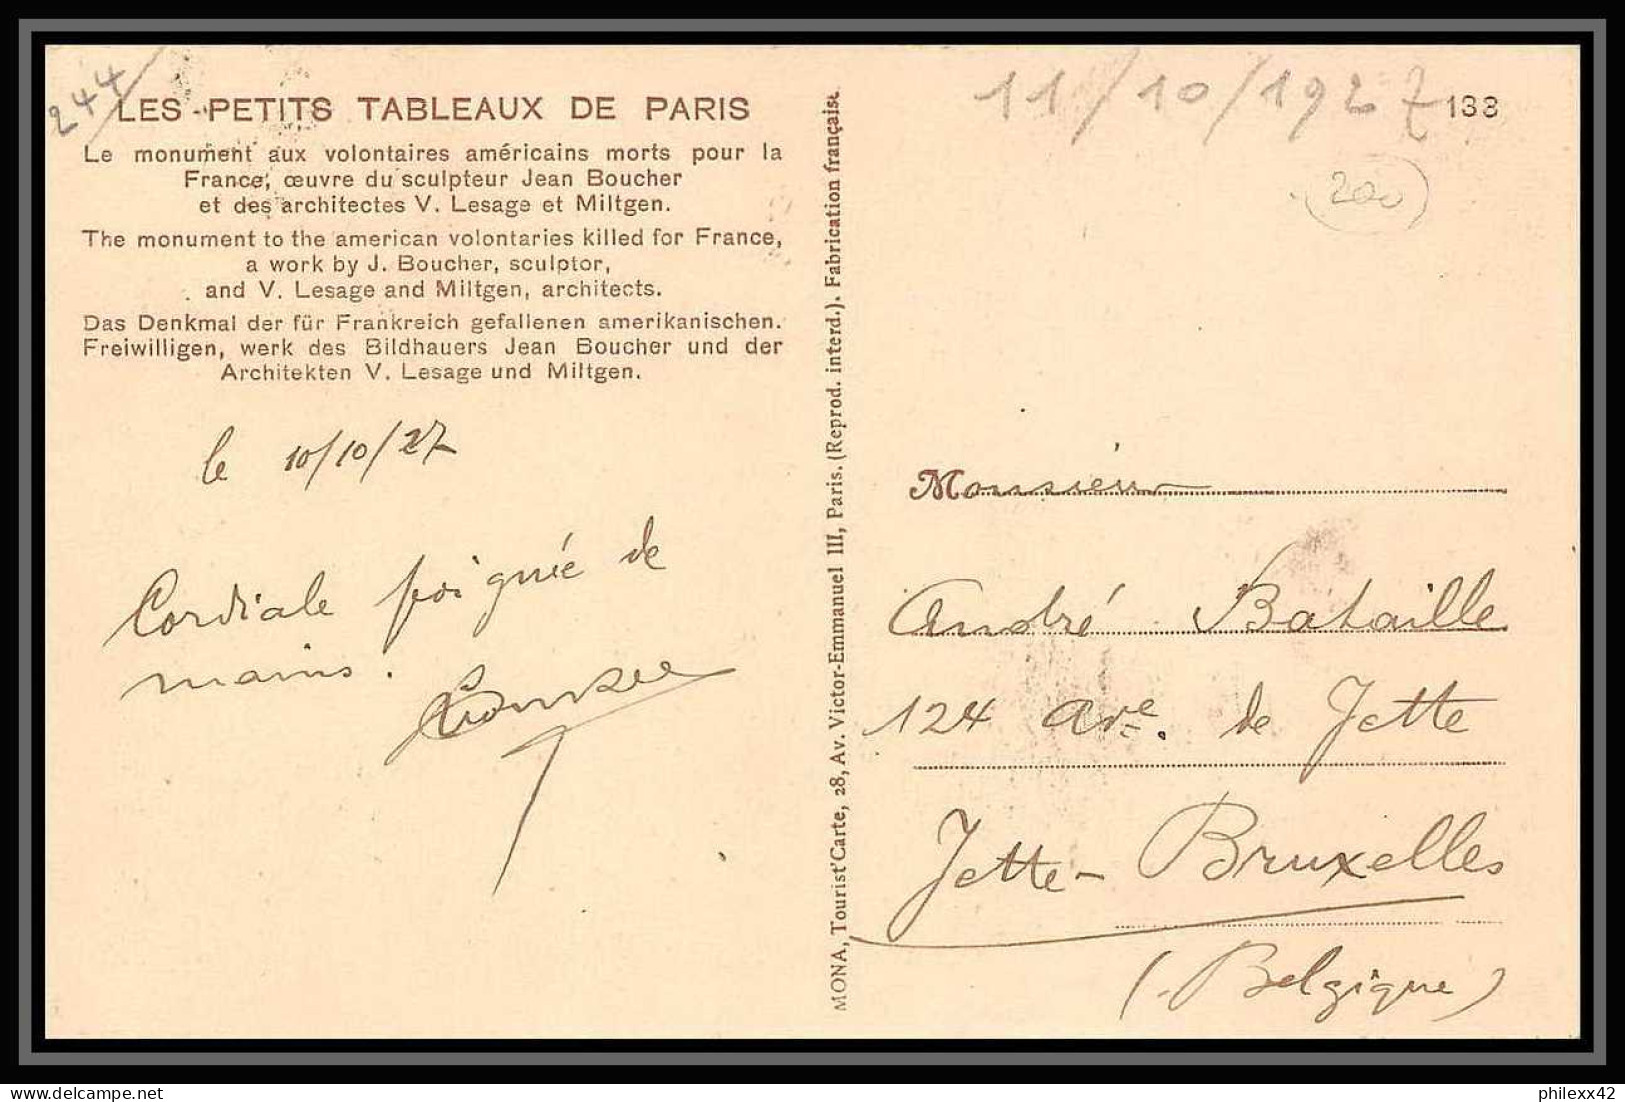 244
LES PETITS TABLEAUX DE PARIS
Le monument aux volontaires américains morts pour la
France, œuvre du sculpteur Jean Boucher
et des architectes V. Lesage et Miltgen.
The monument to the american volontaries killed for France,
a work by J. Boucher, sculptor,
and V. Lesage and Miltgen, architects.
Das Denkmal der für Frankreich gefallenen amerikanischen.
Freiwilligen, werk des Bildhauers Jean Boucher und der
Architekten V. Lesage und Miltgen.
le 10/10/27
Cordiale poignée de
mains.
MONA, Tourist'Carte, 28, Av. Victor-Emmanuel III, Paris. (Reprod. interd.). Fabrication française.
11/10/1927
138
200
Monsieur
André Bataille
124 Ave. de Jette
Jette-Bruxelles
(Belgique)
philexx42